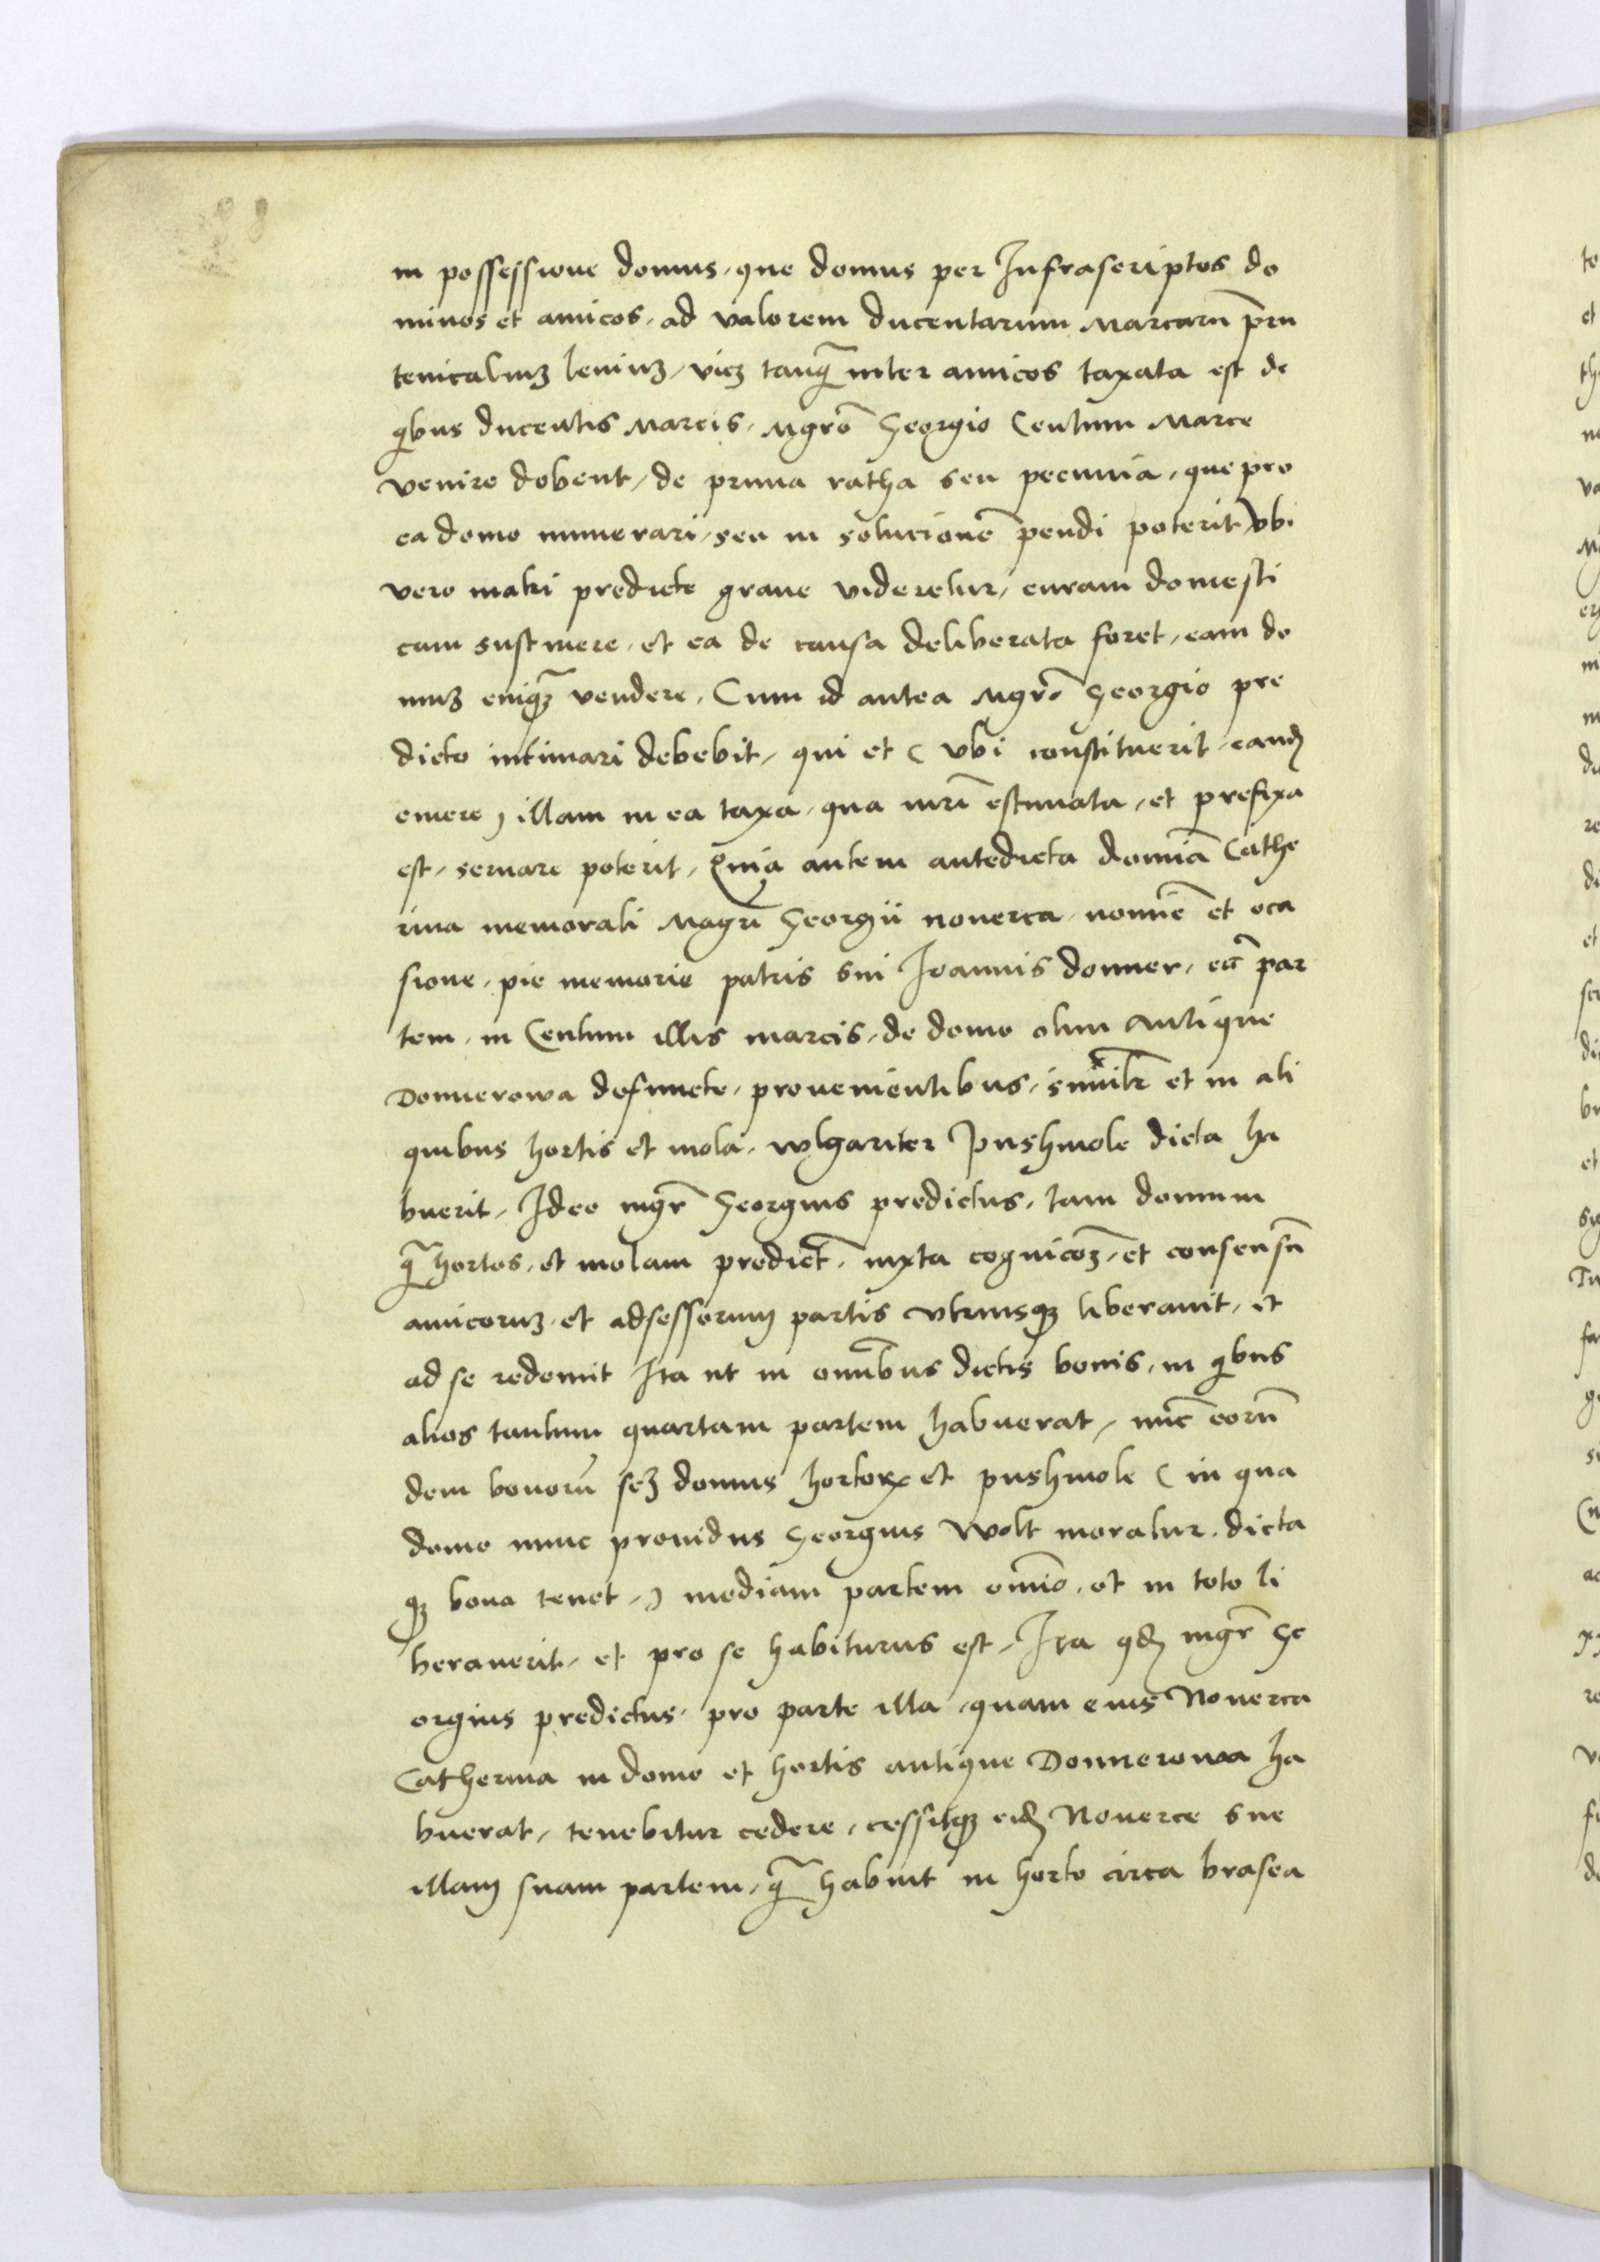 in possessione domus, que domus per Infrascriptos do
minos et amicos, ad valorem ducentarum Marcarũ pru
tenicaliuʒ leuiuʒ, viʒ tanq̃ inter amicos taxata est de
qͥbus ducentis Marcis, Mgrõ Georgio Centum Marce
venire debent, de prima ratha seu pecunia, que pro
ea domo numerari, seu in solucionẽ pendi poterit, vbi
vero matri predicte graue videretur, curam domesti
cam sustinere, et ea de causa deliberata foret, eam do
muʒ cuiqʒ vendere, Cum id antea Mgrõ Georgio pre
dicto intimari debebit, qui et ( vbi constituerit eand
emere ) illam in ea taxa, qua nũc estimata, et prefixa
est, seruare poterit, Quia autem antedicta domiã Cathe
rina memorati Magrĩ Georgii nouerca, nomiẽ et oca
sione, pie memorie patris sui Joannis donner, eciã par
tem, in Centum illis marcis, de domo olim antique
Donnerowa defuncte, prouenientibus, similr̃ et in ali
quibus hortis et mola, wlgariter Pushmole dicta ha
buerit, Ideo mgr̃ Georgius predictus, tam domum
q̃ hortos, et molam predict̃, iuxta cognicõʒ, et consensũ
amicoruʒ, et adsessorum partis vtriusqʒ liberauit, et
ad se redemit Ita ut in omĩbus dictis bonis, in qͥbus
alios tantum quartam partem habuerat, nũc eorũ
dem bonorũ scʒ domus hortorꝝ et pushmole ( in qua
domo nunc prouidus Georgius Wolt moratur, dicta
qʒ bona tenet, ) mediam partem omnĩo, et in toto li
berauerit, et pro se habiturus est, Ita qd mgr̃ Ge
orgius predictus, pro parte illa, quam eius Nouerca
Catherina in domo et hortis antique Donnerowa ha
buerat, tenebitur cedere, cessitqʒ eid Nouerce sue
illam suam partem, q̃ habuit in horto circa brasea